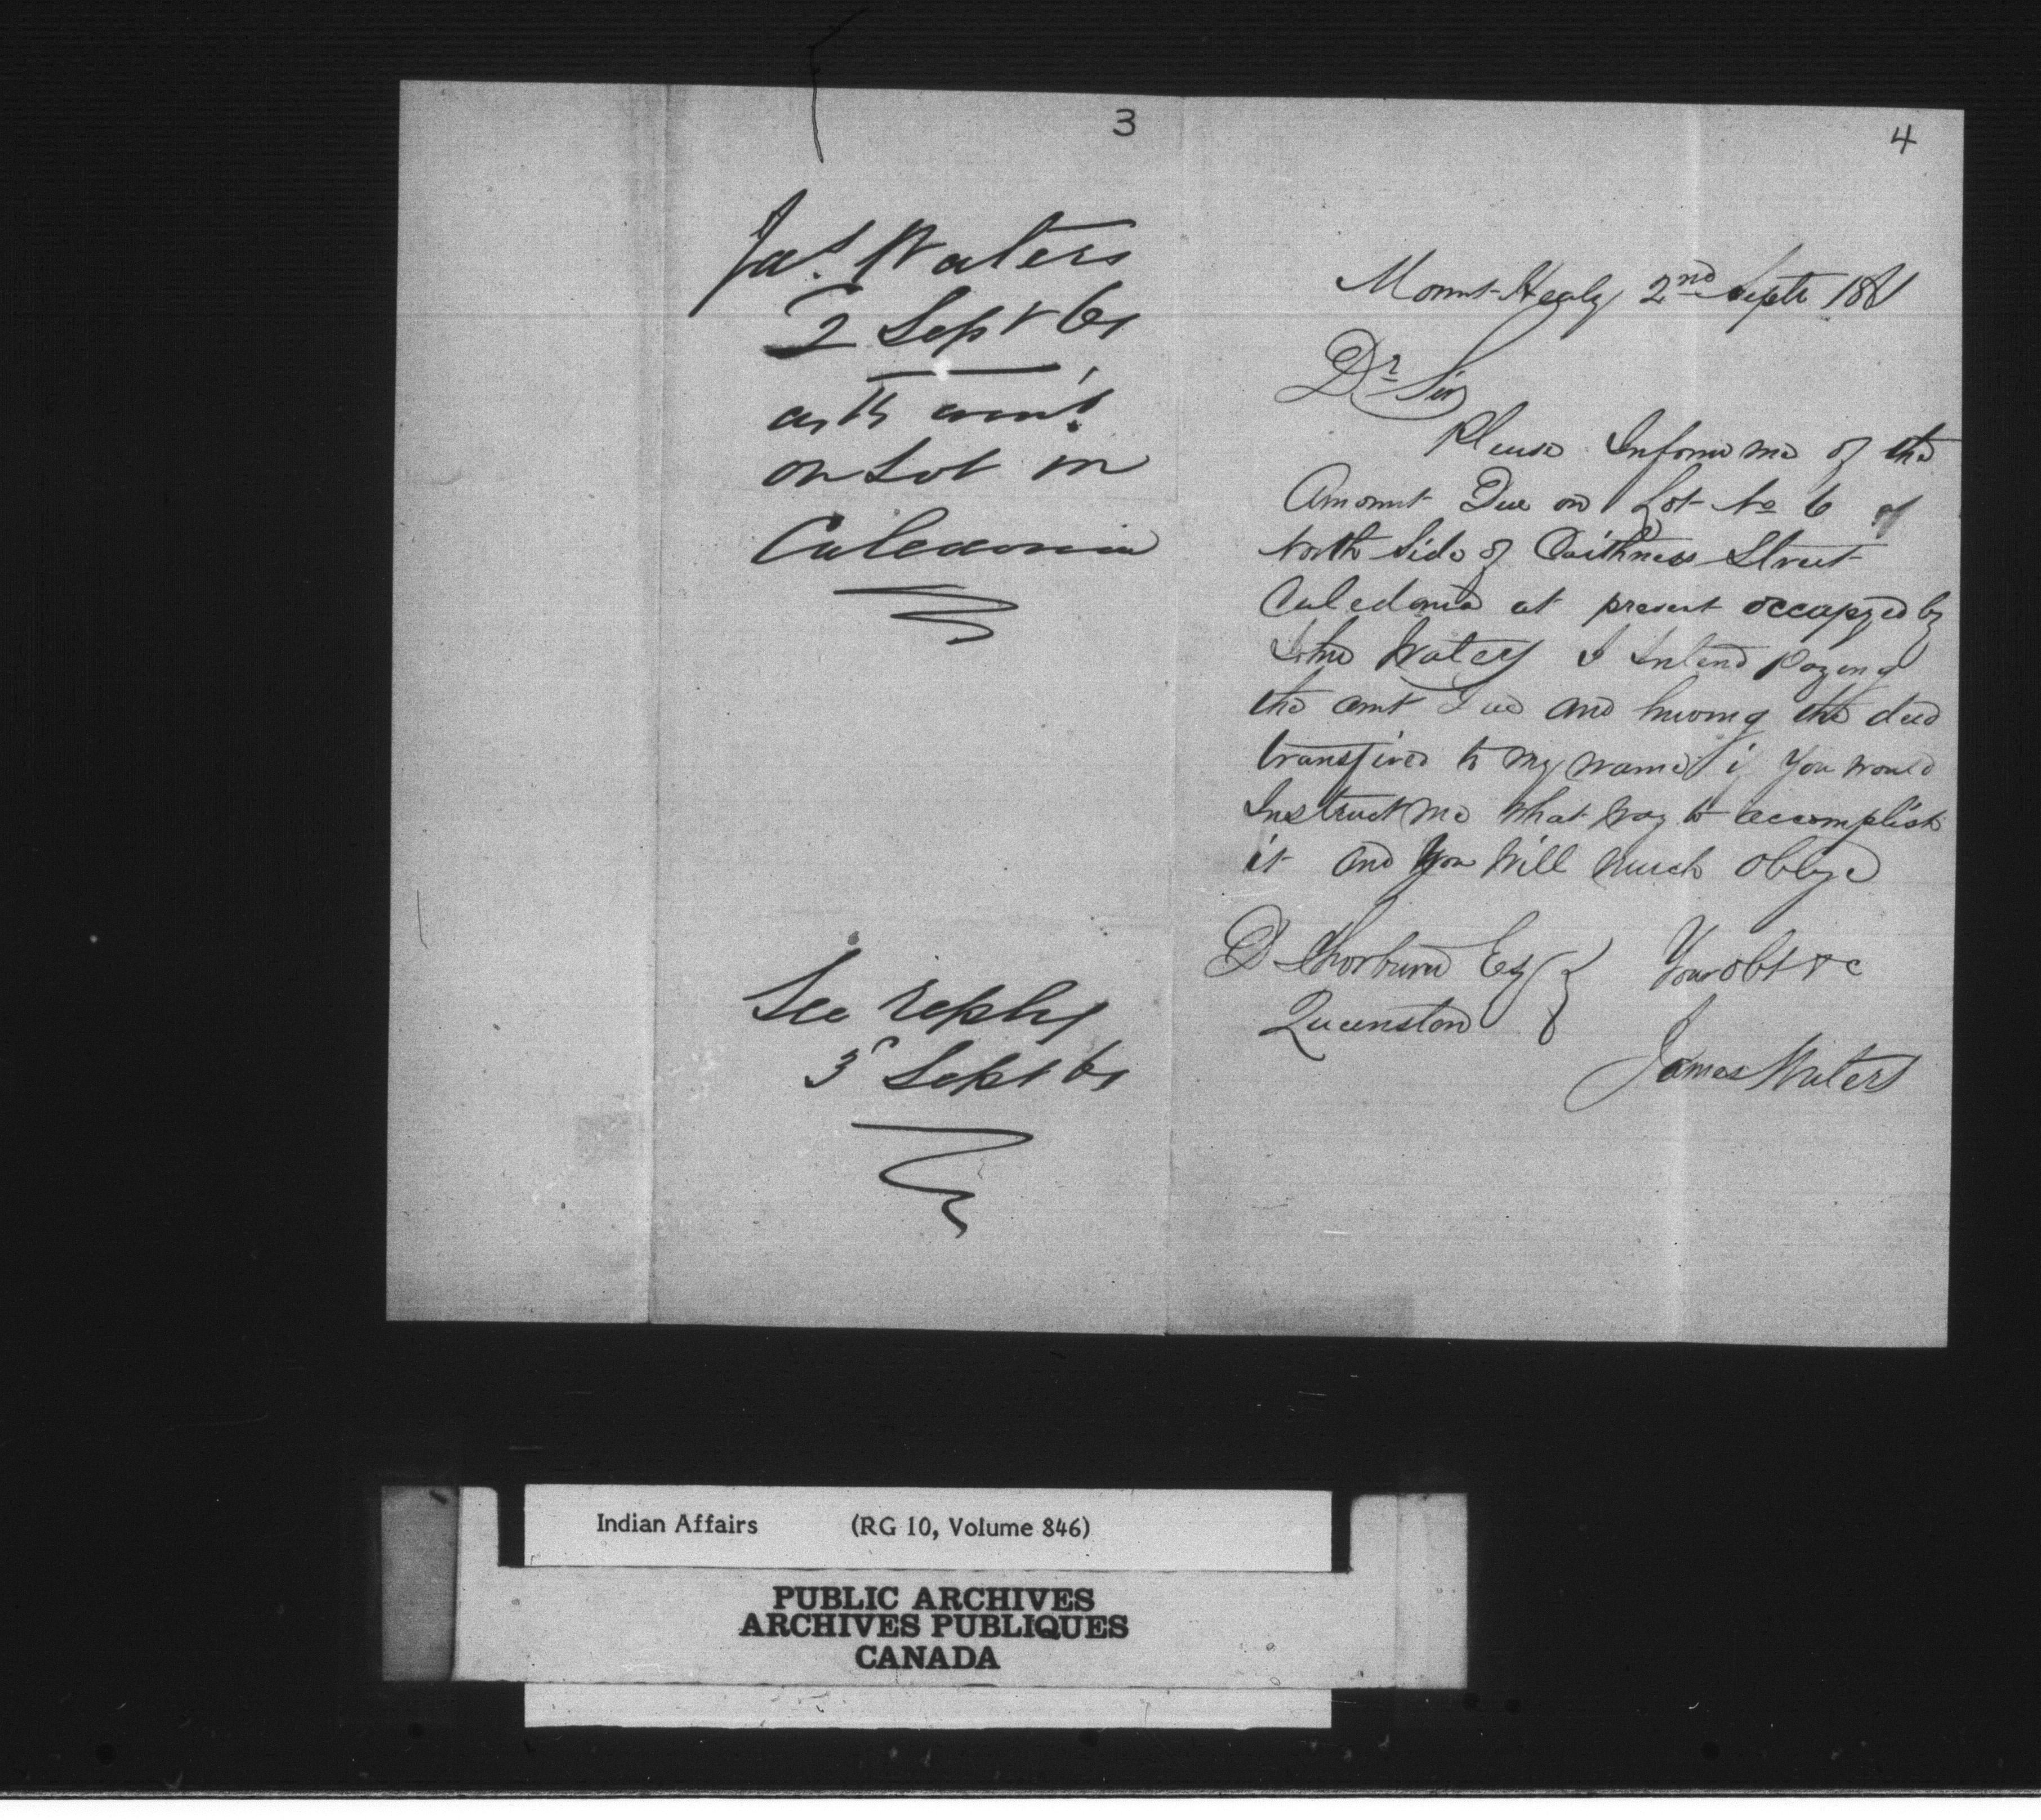 3
Jas. Waters
2 Sept 61
as to amt.
on Lot in
Caledonia
See reply
3 Sept 61
4
Mount Healy 2nd Septr 1861
Dr Sir
Please Inform me of the
Amount Due on Lot No 6 of
North Side of Caithness Street
Caledonia at present occupyed by
John Waters I Intend Paying
the amt Due and having the deed
transfired to my name if You would
Instruct me What Way to accomplish
it and You Will Much Oblige
D Thorburn Esq
Queenston
Your Obt &c
James Waters
Indian Affairs (RG 10, Volume 846)
PUBLIC ARCHIVES
ARCHIVES PUBLIQUES
CANADA